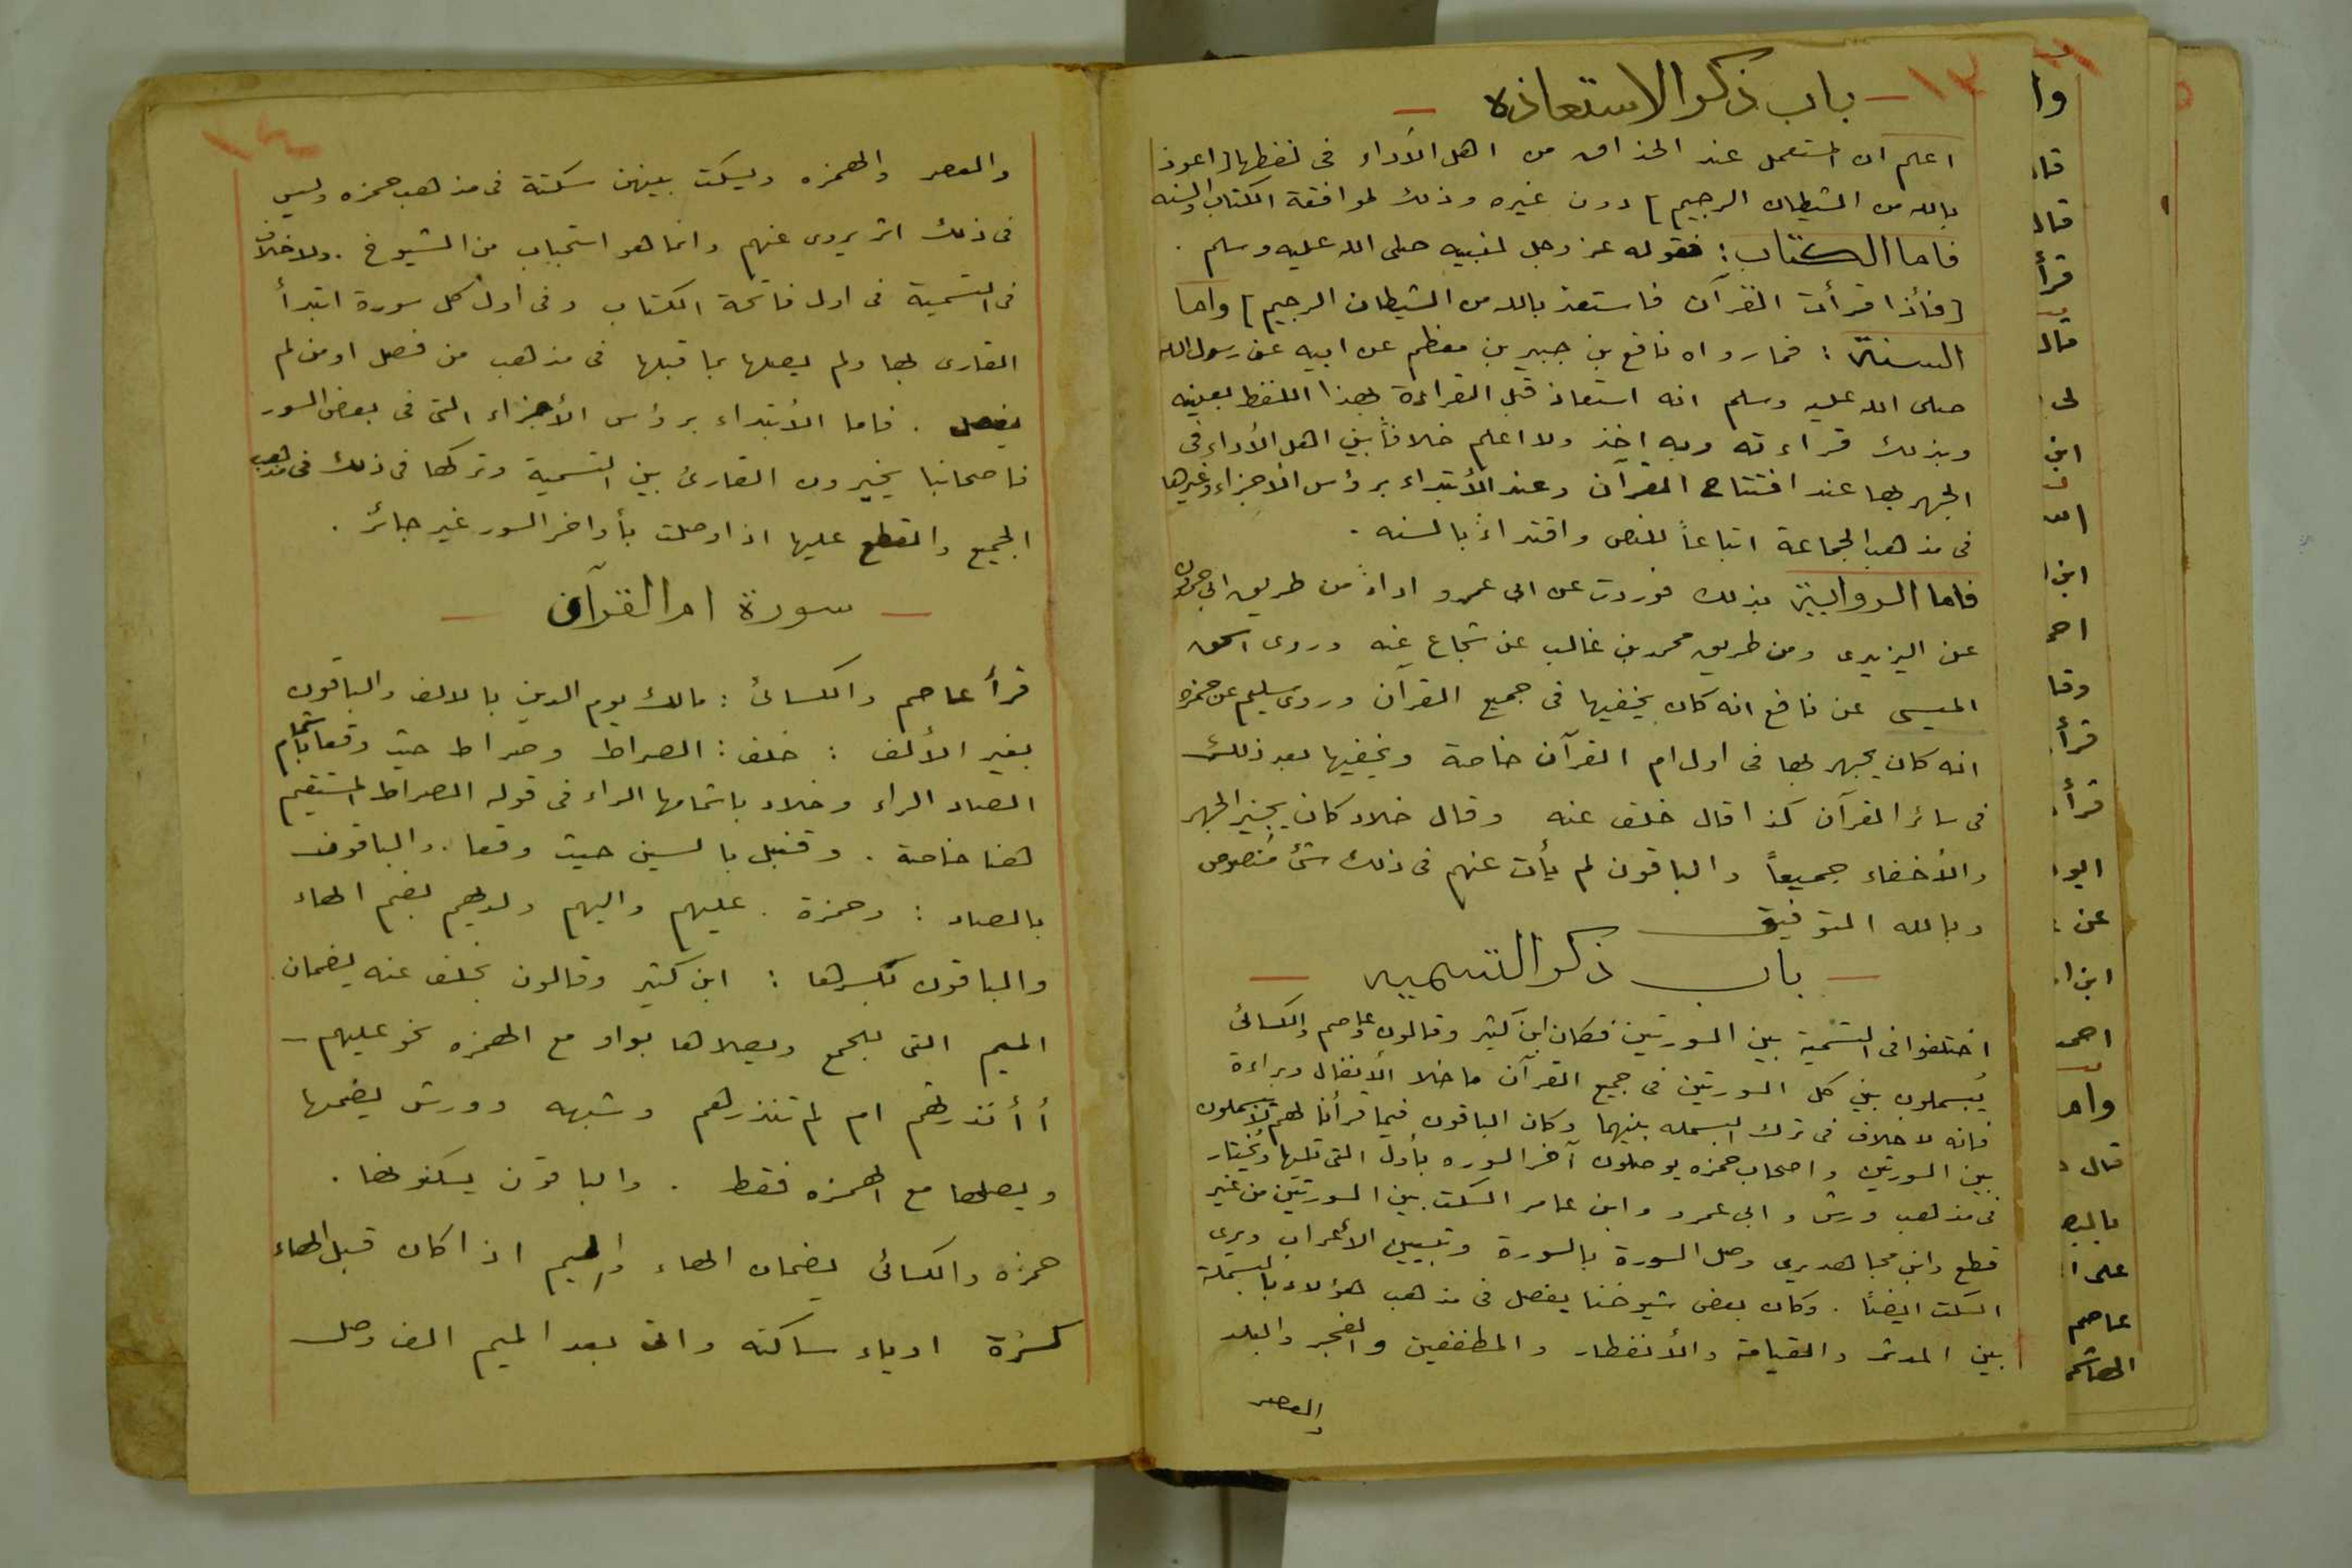 ١٣
باب ذكر الاستعاذه
اعلم ان المستعمل عند الحذاق من اهل الأداء فى لفظها [اعوذ
بالله من الشيطان الرجيم] دون غيره وذلك لموافقة الكتاب والسنه
فاما الكتاب: فقوله عز وجل لنبيه صلى الله عليه وسلم .
[فأذا قرأت القرآن فاستعذ بالله من الشيطان الرجيم] واما
السنة: فما رواه نافع بن جبير بن مطعم عن ابيه عن رسول الله
صلى الله عليه وسلم انه استعاذ قبل القراءة بهذا اللفظ بعينه
وبذلك قراءته وبه اخذ ولا اعلم خلافاً بين اهل الأداء فى
الجهر بها عند افتتاح القرآن وعند الأبتداء برؤس الأجزاء وغيرها
فى مذهب الجماعة اتباعاً للنص واقتداءً بالسنه .
فاما الرواية بذلك فوردت عن ابى عمرو اداءً من طريق ابى حمدون
عن اليزيدى ومن طريق محمد بن غالب عن شجاع عنه وروى اسحق
المسيبى عن نافع انه كان يخفيها فى جميع القرآن وروى سليم عن حمزه
انه كان يجهر بها فى اول ام القرآن خاصة ويخفيها بعد ذلك
فى سائر القرآن كذا قال خلف عنه وقال خلاد كان يجيز الجهر
والأخفاء جميعاً والباقون لم يأت عنهم فى ذلك شئ منصوص
وبالله التوفيق
باب ذكر التسميه
اختلفوا فى التسمية بين السورتين فكان ابن كثير وقالون وعاصم والكسائى
يبسملون بين كل السورتين فى جميع القرآن ما خلا الأنفال وبراءة
فانه لا خلاف فى ترك البسمله بينهما وكان الباقون فيما قرأنا لهم لا يبسملون
بين السورتين واصحاب حمزه يوصلون آخر السوره بأول التى تليها ويُختار
فى مذهب ورش وابى عمرو وابن عامر السكت بين السورتين من غير
قطع وابن مجاهد يرى وصل السورة بالسورة وتبيين الأعراب ويرى
السكت ايضاً . وكان بعض شيوخنا يفصل فى مذهب هؤلاء بالبسملة
بين المدثر والقيامة والأنفطار والمطففين والفجر والبلد
والعصر
١٤
والعصر والهمزه ويسكت بينهن سكتة فى مذهب حمزه وليس
فى ذلك اثر يروى عنهم وانما هو استحباب من الشيوخ . ولا خلاف
فى التسمية فى اول فاتحة الكتاب وفى اول كل سورة ابتدأ
القارى بها ولم يصلها بما قبلها فى مذهب من فصل او من لم
يفصل . فاما الأبتداء برؤس الأجزاء التى فى بعض السور
فاصحابنا يخيرون القارئ بين التسمية وتركها فى ذلك فى مذهب
الجميع والقطع عليها اذا وصلت بأواخر السور غير جائز .
سورة ام القرآن
قرأ عاصم والكسائى : مالك يوم الدين بالالف والباقون
بغير الألف : خلف : الصراط وصراط حيث وقعا باشمام
الصاد الزاء وخلاد باشمامها الزاء فى قوله الصراط المستقيم
هنا خاصة . وقنبل بالسين حيث وقعا . والباقون
بالصاد : وحمزة . عليهم واليهم ولديهم بضم الهاء
والباقون بكسرها : ابن كثير وقالون بخلف عنه يضمان
الميم التى للجمع ويصلاها بواو مع الهمزه نحو عليهم
أأنذرتهم ام لم تنذرهم وشبهه وورش يضمها
ويصلها مع الهمزه فقط . والباقون يسكنونها .
حمزه والكسائى يضمان الهاء والميم اذا كان قبل الهاء
كسرة او ياء ساكنه واتى بعد الميم الف وصل